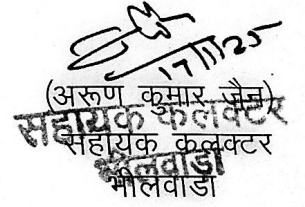 17/11/25
(अरूण कुमार जैन)
सहायक कलक्टर
सहायक कलक्टर
भीलवाडा
भीलवाडा